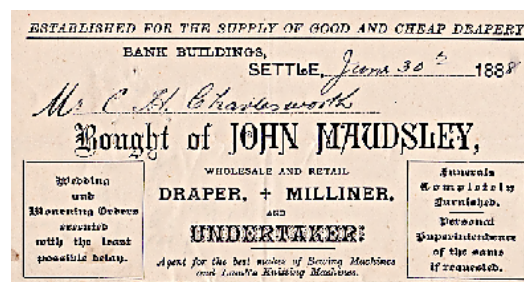 ESTABLISHED FOR THE SUPPLY OF GOOD AND CHEAP DRAPERY
BANK BUILDINGS,
SETTLE, June 30th 1888
Mr C H Charlesworth
Bought of JOHN MAUDSLEY,
WHOLESALE AND RETAIL
DRAPER, + MILLINER,
AND
UNDERTAKER:
Agent for the best makes of Sewing Machines
and Lamb's Knitting Machines.
Wedding
und
Mourning Orders
executed
with the least
possible delay.
Funerals
Completely
Furnished.
Personal
Superintendence
of the same
if requested.